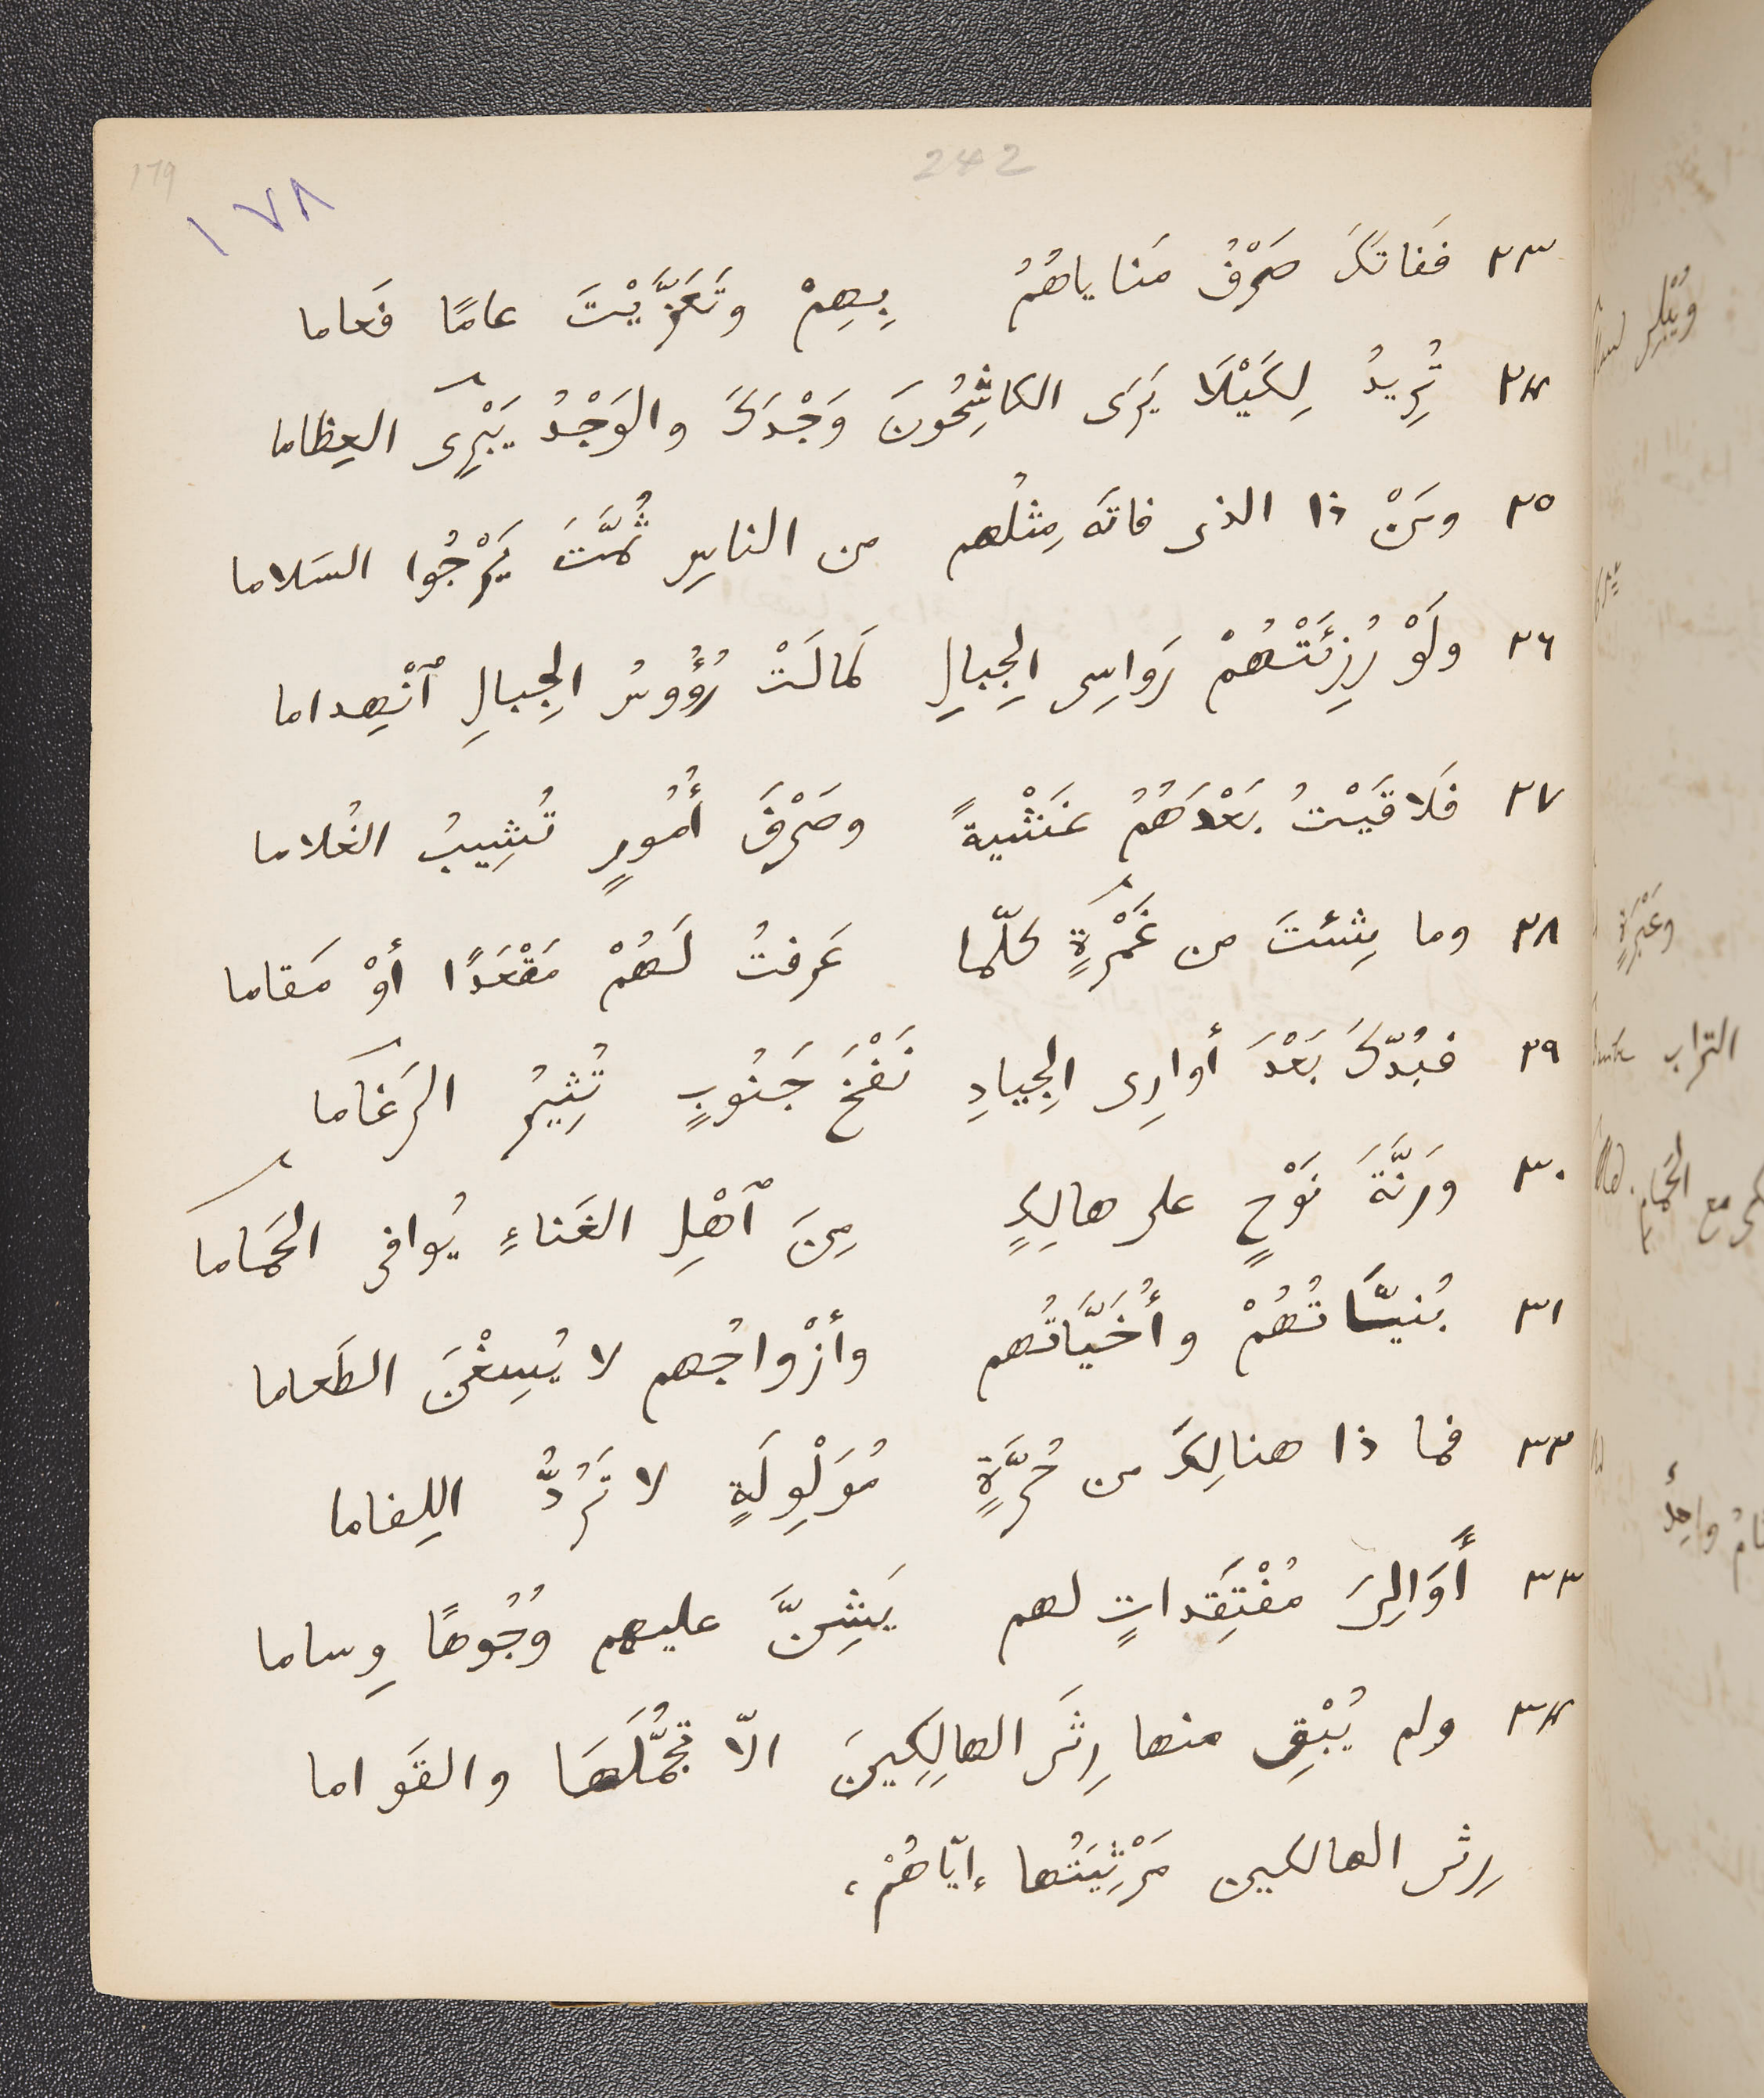 242
179
١٧٨
٢٣ فَفاتَكَ صَرْفُ مَناياهُمُ بِهِمْ وتَعَزَّيْتَ عامًا فَعاما
٢٤ تُرِيدُ لِكَيْلَا يَرَى الكاشِحُونَ وَجْدَكَ والوَجْدُ يَبْرِى العِظاما
٢٥ ومَنْ ذا الذى فاتَه مِثلُهم من الناسِ ثُمَّتَ يَرْجُوا السَلاما
٢٦ ولَوْ رُزِئَتْهُمْ رَواسِى الجِبالِ لَمالَتْ رُؤُوسُ الجِبالِ ٱنْهِداما
٢٧ فَلاقَيْتُ بَعْدَهُمُ غَشْيةً وصَرْفَ أُمُورٍ تُشِيبُ الغُلاما
٢٨ وما شِئتَ من غَمْرَةٍ كلّما عَرفتُ لَهُمْ مَقْعَدًا أوْ مَقاما
٢٩ فبُدّلَ بَعْدَ أوارِى الجِيادِ نَفْخَ جَنُوبٍ تُثِيرُ الرَغاما
٣٠ ورَنَّةَ نَوْحٍ على هالِكٍ مِنَ ٱهْلِ الغَناءِ يُوافى الحَماما
٣١ بُنيّاتُهُمْ وأُخَيَّاتُهم وأزْواجُهم لا يُسِغْنَ الطَعاما
٣٢ فما ذا هنالِكَ من حُرَّةٍ مُوَلْوِلَةٍ لا تَرُدُّ اللِفاما
٣٣ أَوَالِىَ مُفْتَقِداتٍ لهم يَشِنَّ عليهم وُجُوهًا وِساما
٣٤ ولم يُبْقِ منها رِثَى الهالِكِينَ الّا تَجَمُّلَهَا والقَواما
رِثى الهالكين مَرْثِيَتُها إيّاهُمْ،
وعَبْرَةٍ
التراب
مع الحَمام
واحِدٌ